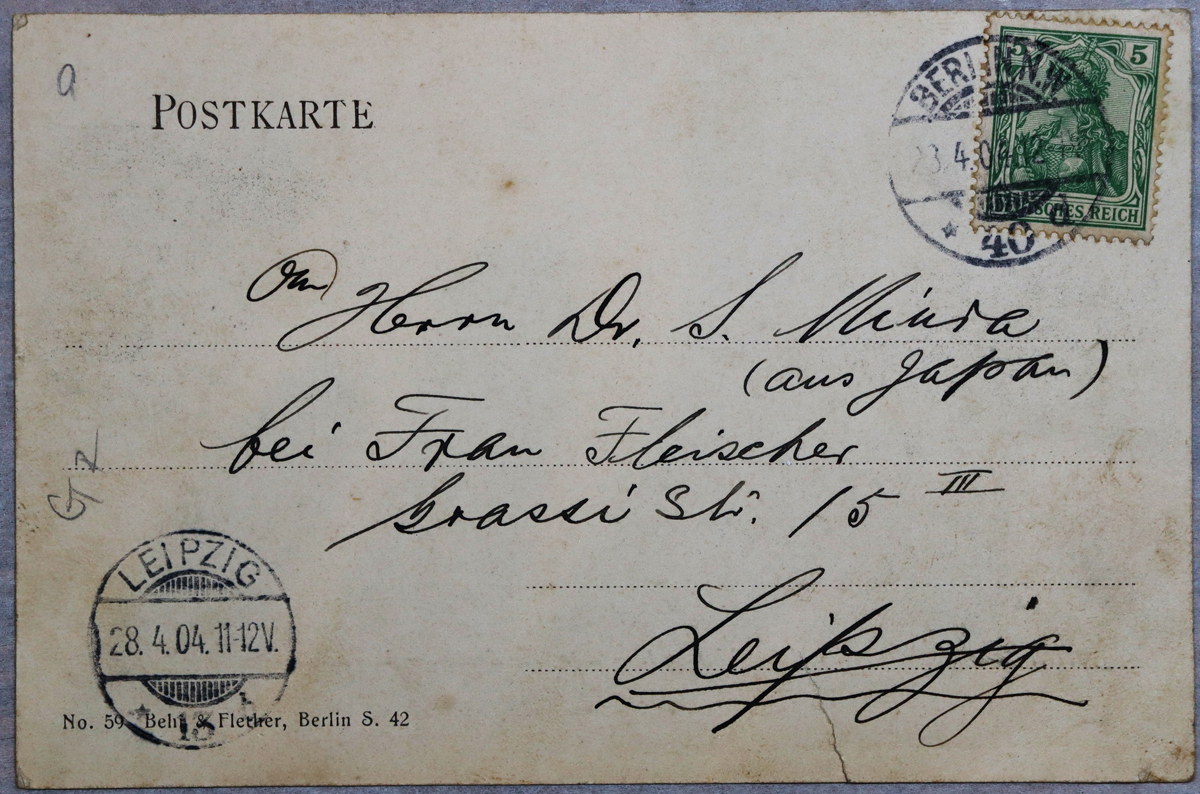 a
POSTKARTE
BERLIN N.W.
5 5
4.04
DEUTSCHES REICH
* 40 d
an
Herrn Dr. S. Miura
(aus Japan)
bei Frau Fleischer
Grassi Str. 15 III
Leipzig
LEIPZIG
28. 4. 04. 11-12V.
* 13
No. 59 Behr & Flether, Berlin S. 42